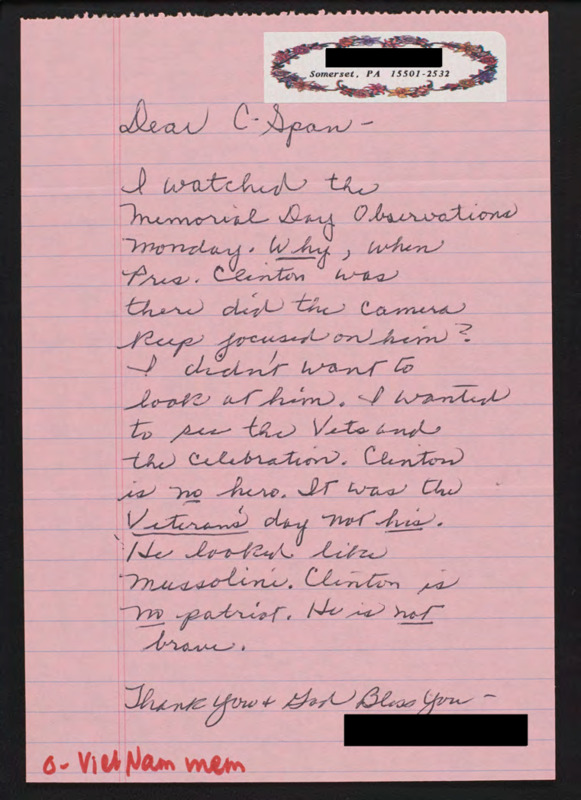 Somerset, PA 15501-2532
Dear C-Span-
I watched the
Memorial Day Observations
Monday. Why, when
Pres. Clinton was
there did the camera
keep focused on him?
I didn't want to
look at him. I wanted
to see the Vets and
the celebration. Clinton
is no hero. It was the
Veterans' day not his.
He looked like
Mussolini. Clinton is
no patriot. He is not
brave.
Thank you + God Bless You-
o- Viet Nam mem